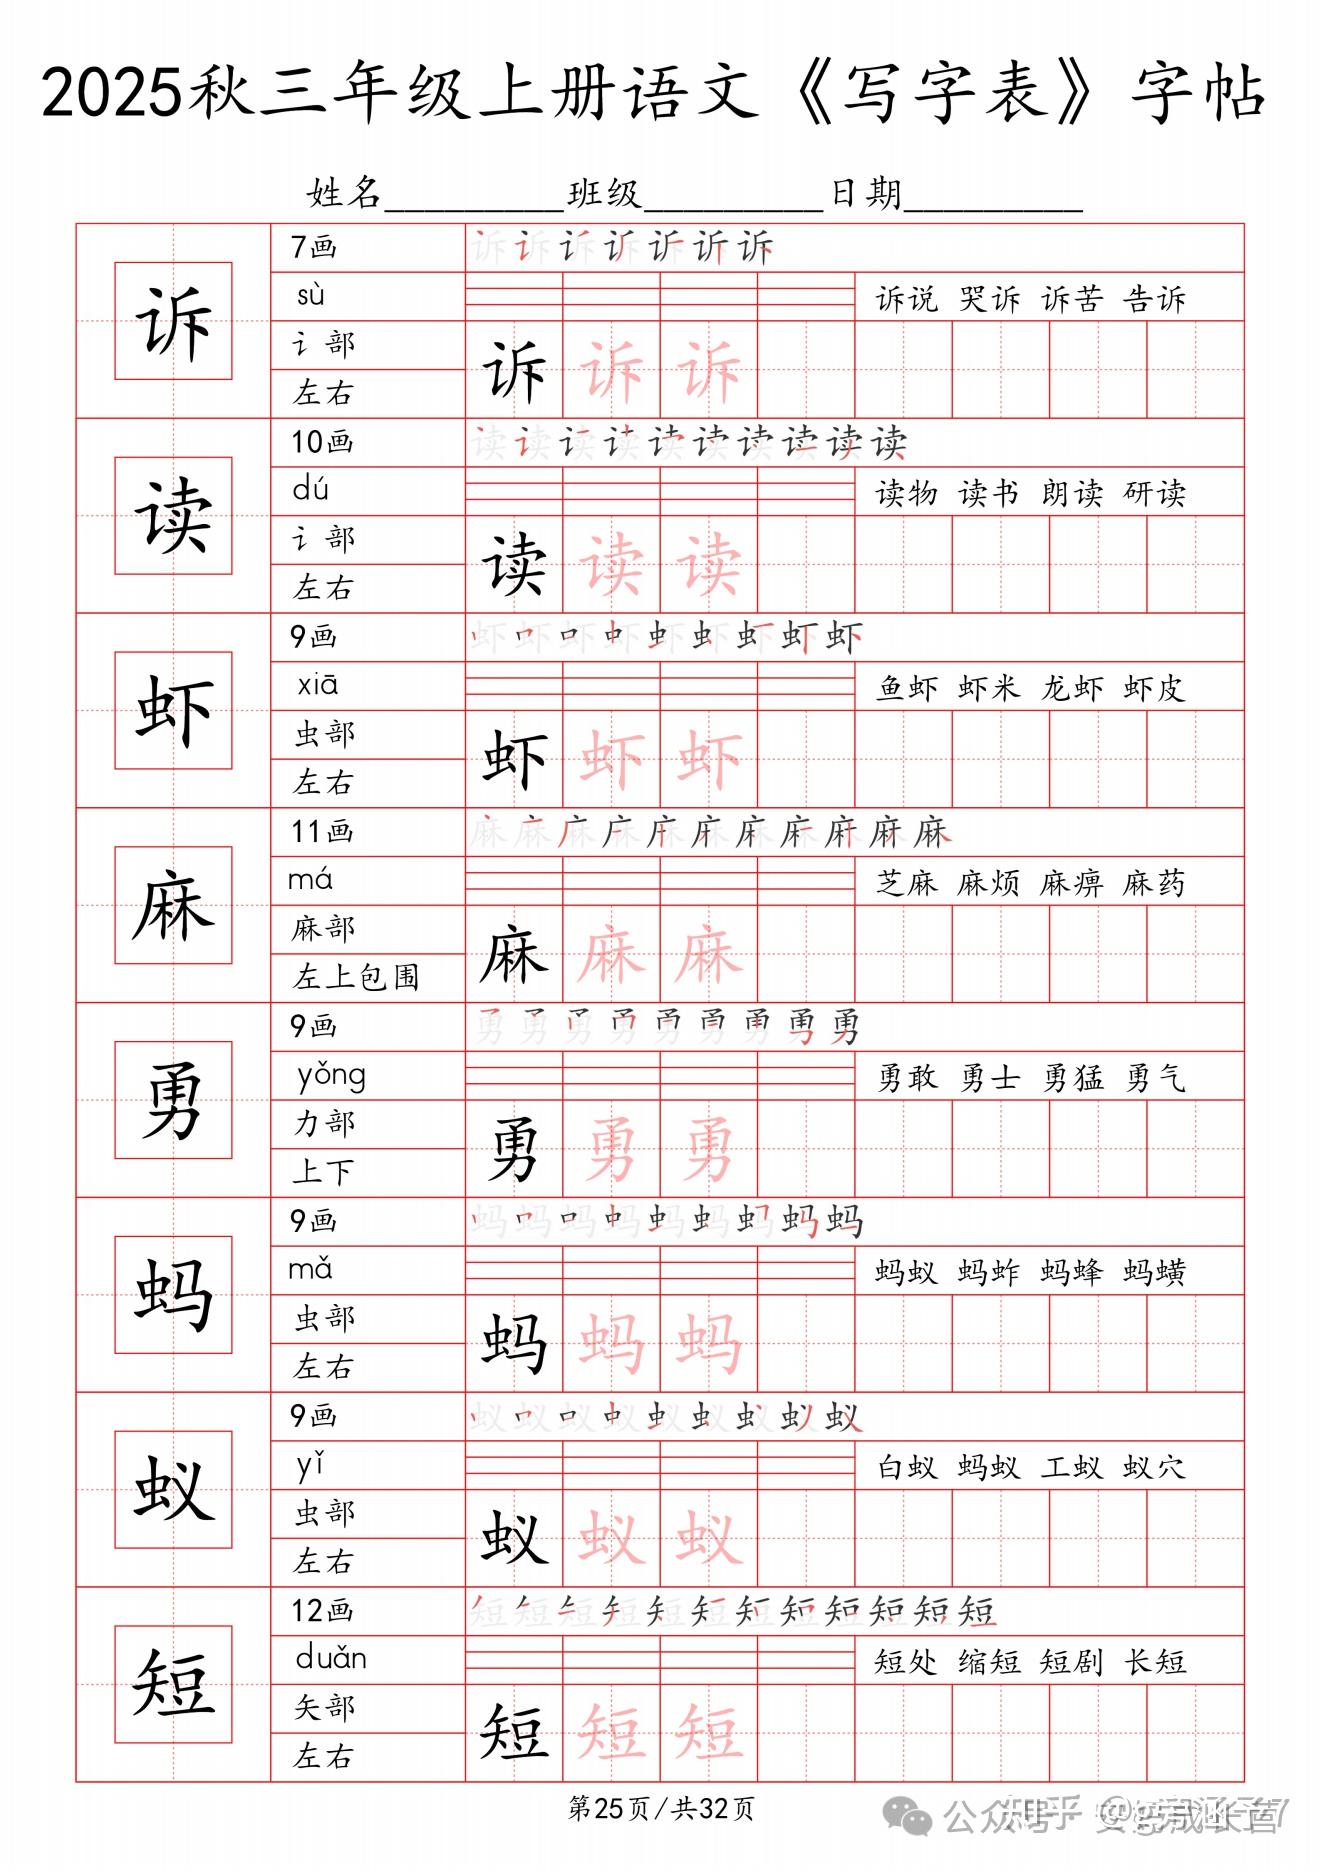 2025秋三年级上册语文《写字表》字帖
姓名_________班级_________日期_________
诉
7画
诉诉诉诉诉诉诉
sù
诉说 哭诉 诉苦 告诉
讠部
左右
诉诉诉
读
10画
读读读读读读读读读读
dú
读物 读书 朗读 研读
讠部
左右
读读读
虾
9画
虾虾虾虾虾虾虾虾虾
xiā
鱼虾 虾米 龙虾 虾皮
虫部
左右
虾虾虾
麻
11画
麻麻麻麻麻麻麻麻麻麻麻
má
芝麻 麻烦 麻痹 麻药
麻部
左上包围
麻麻麻
勇
9画
勇勇勇勇勇勇勇勇勇
yǒng
勇敢 勇士 勇猛 勇气
力部
上下
勇勇勇
蚂
9画
蚂蚂蚂蚂蚂蚂蚂蚂蚂
mǎ
蚂蚁 蚂蚱 蚂蜂 蚂蟥
虫部
左右
蚂蚂蚂
蚁
9画
蚁蚁蚁蚁蚁蚁蚁蚁蚁
yǐ
白蚁 蚂蚁 工蚁 蚁穴
虫部
左右
蚁蚁蚁
短
12画
短短短短短短短短短短短短
duǎn
短处 缩短 短剧 长短
矢部
左右
短短短
第25页/共32页
公众